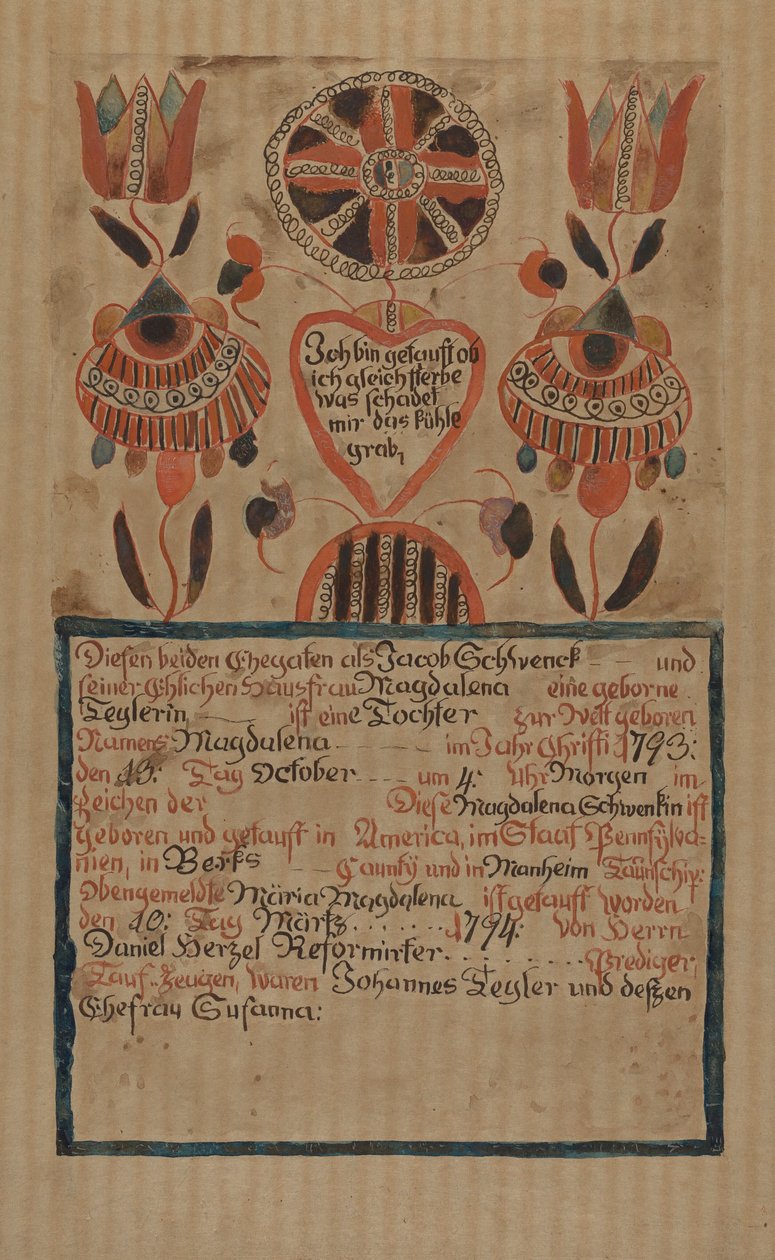 Ich bin getauft ob
ich gleich sterbe
was schadet
mir das kühle
grab,
Diesen beiden Ehegaten als Jacob Schwenck -- und
seiner Ehlichen Hausfrau Magdalena eine geborne
Teylerin, --- ist eine Tochter zur Welt geboren
Namens Magdalena ---- im Jahr Christi 1793:
den 13: Tag October ---- um 4: Uhr Morgen im
Zeichen der Diese Magdalena Schwenkin ist
geboren und getauft in America, im Staat Pennsylva=
nien, in Berks --- Caunty und in Manheim Taunschip:
Obengemeldte Märia Magdalena ist getauft worden
den 10: Tag Märtz. . . . . . . 1794: von Herrn
Daniel Herzel Reformirter. . . . . . . . . Prediger,
Tauf-Zeugen, waren Johannes Teyler und deszen
Ehefrau Susanna: